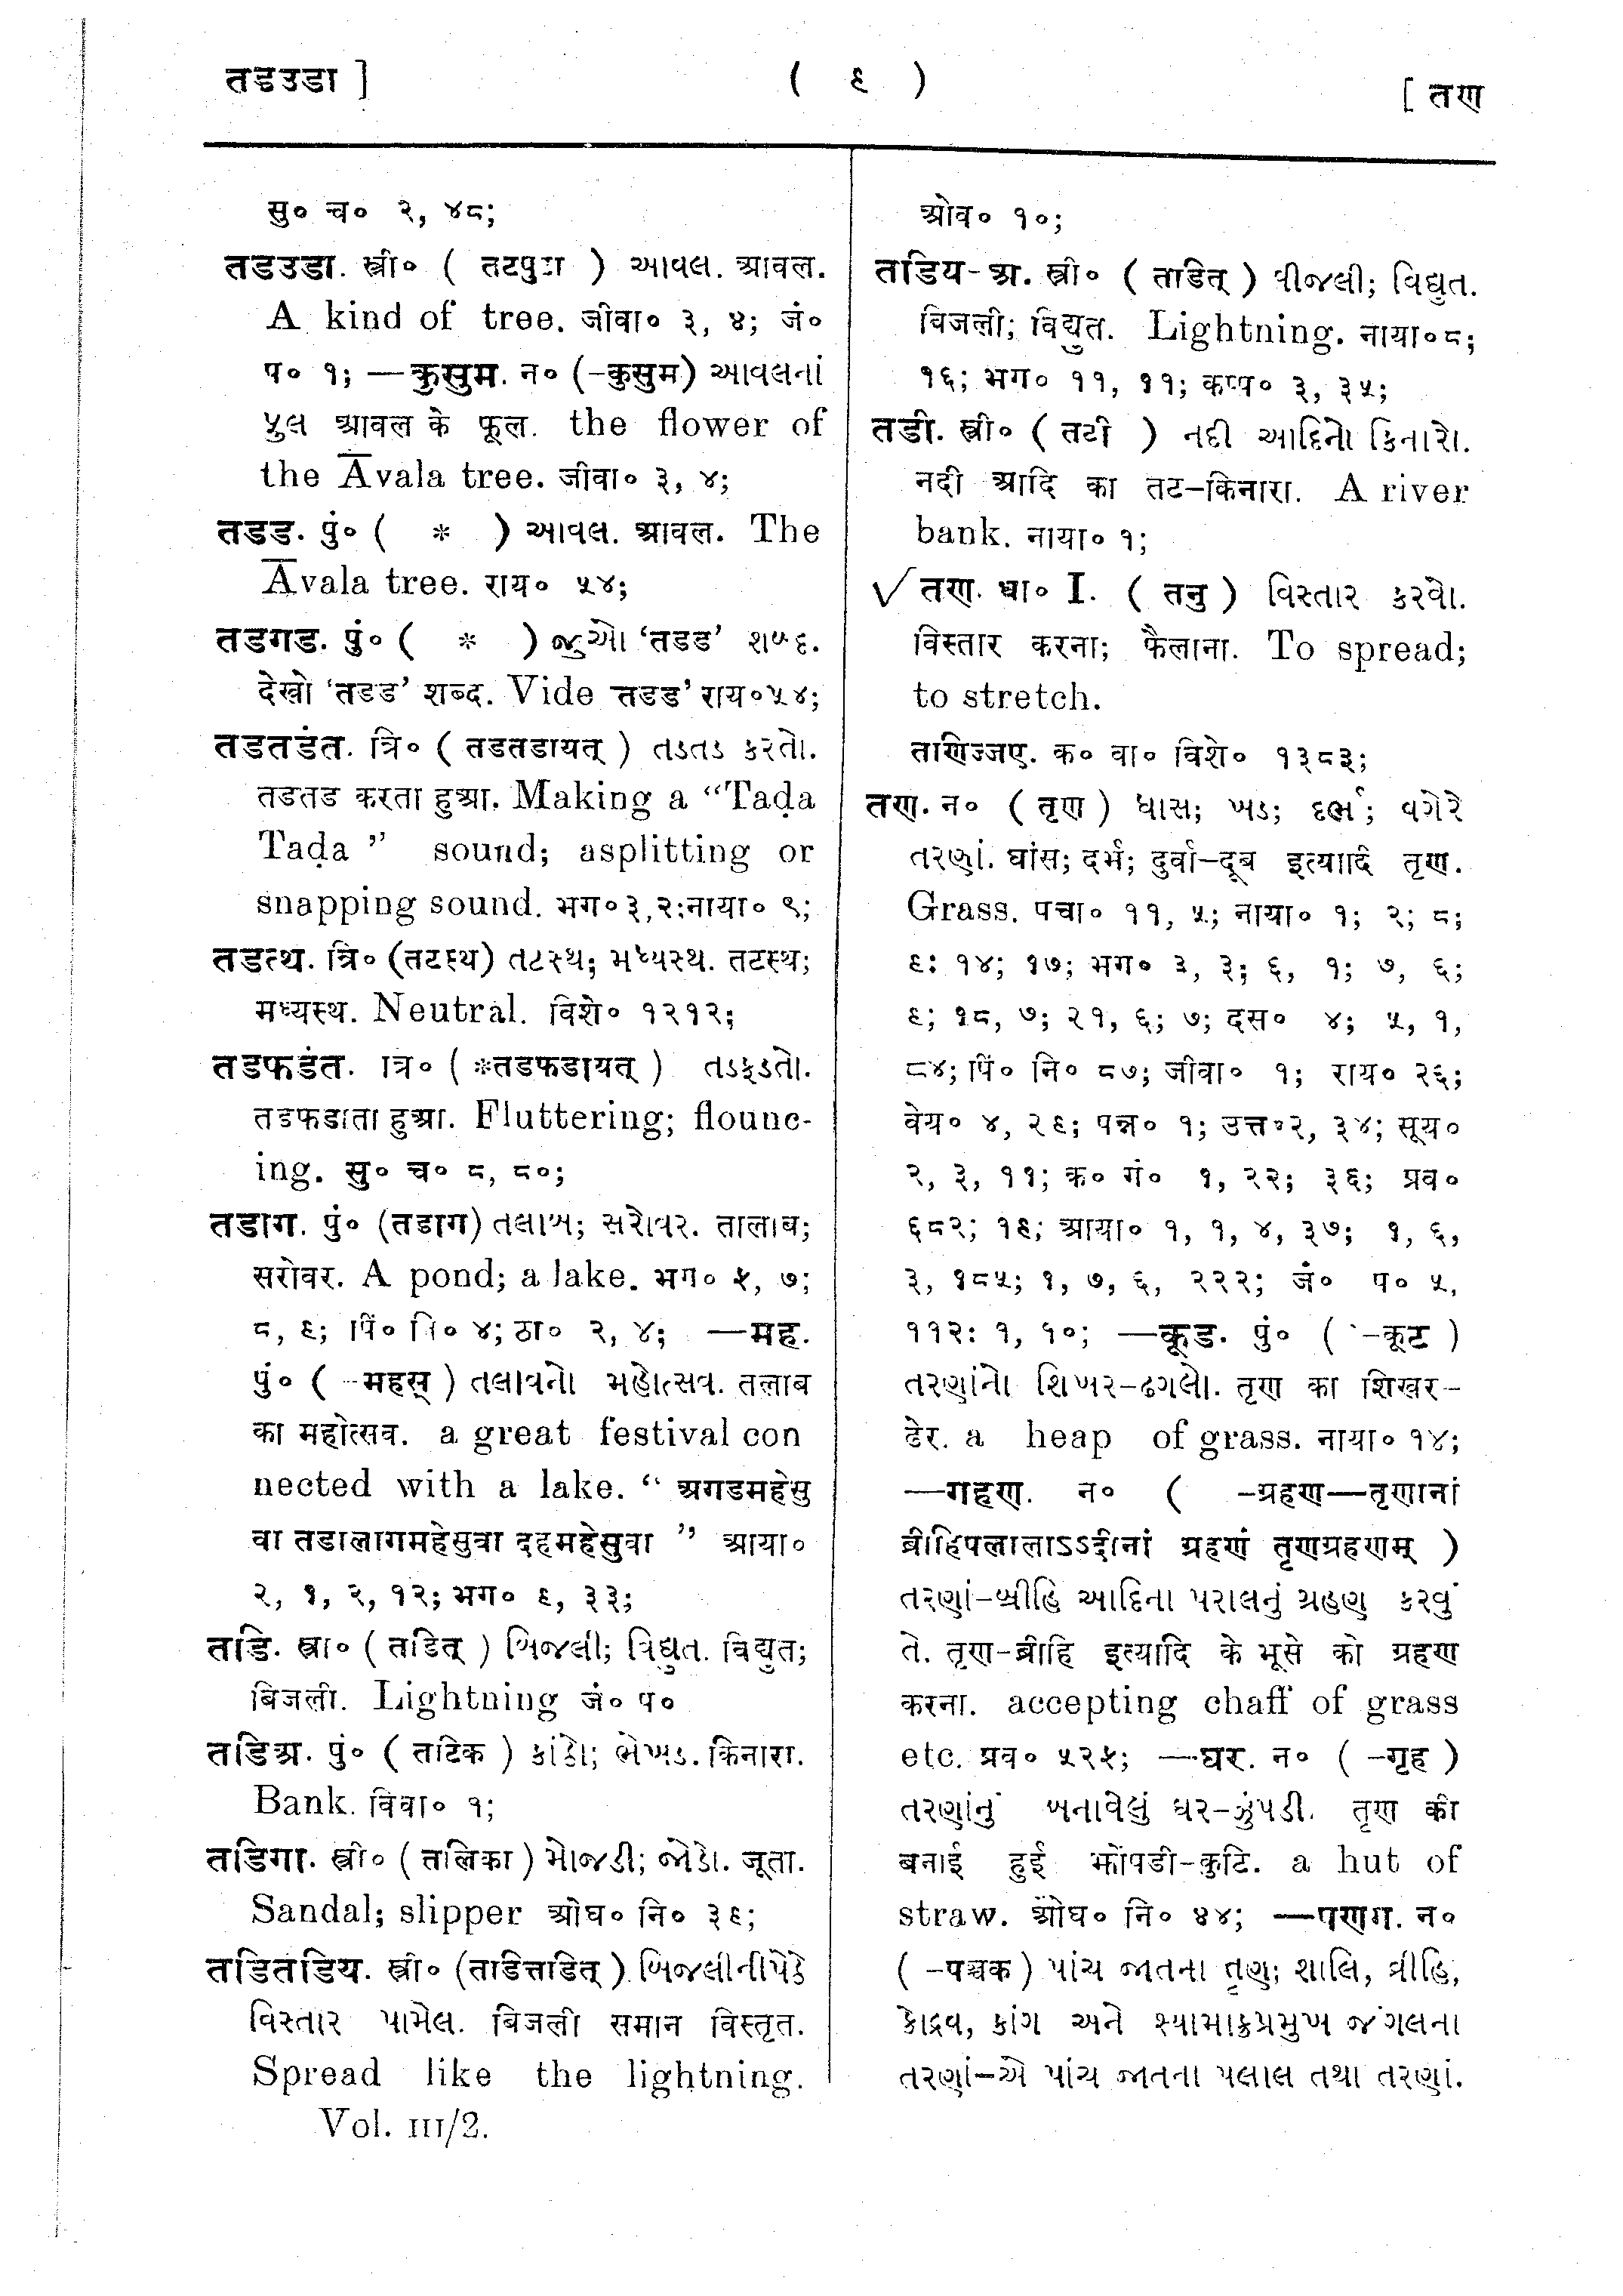 तडउडा ]
( ९ )
[ तण
सु० च० २, ४८;
तडउडा. स्त्री० ( तटपुटा ) આવલ. आवल.
A kind of tree. जीवा० ३, ४; जं०
प० १; —कुसुम. न० (-कुसुम) આવલનાં
ફુલ आवल के फूल. the flower of
the Āvala tree. जीवा० ३, ४;
तडड. पुं० ( * ) આવલ. आवल. The
Āvala tree. राय० ५४;
तडगड. पुं० ( * ) જુઓ ‘तडड’ શબ્દ.
देखो ‘तडड’ शब्द. Vide तडड’ राय०५४;
तडतडंत. त्रि० ( तडतडायत् ) તડતડ કરતો.
तडतड करता हुआ. Making a “Taḍa
Taḍa ” sound; asplitting or
snapping sound. भग०३,२;नाया० ९;
तडत्थ. त्रि० (तटस्थ) તટસ્થ; મધ્યસ્થ. तटस्थ;
मध्यस्थ. Neutral. विशे० १२१२;
तडफडंत. त्रि० ( *तडफडायत् ) તડફડતો.
तडफडाता हुआ. Fluttering; flounc-
ing. सु० च० ८, ८०;
तडाग. पुं० (तडाग) તલાબ; સરોવર. तालाब;
सरोवर. A pond; a lake. भग० ५, ७;
८, ९; पिं० नि० ४; ठा० २, ४; —मह.
पुं० ( -महस् ) તલાવનો મહોત્સવ. तलाब
का महोत्सव. a great festival con
nected with a lake. “ अगडमहेसु
वा तडालागमहेसुवा दहमहेसुवा ” आया०
२, १, २, १२; भग० ९, ३३;
तडि. स्त्री० ( तडित् ) બિજલી; વિદ્યુત. विद्युत;
बिजली. Lightning जं० प०
तडिअ. पुं० ( तटिक ) કાંઠો; ભેખડ. किनारा.
Bank. विवा० १;
तडिगा. स्त्री० ( तलिका ) મોજડી; જોડો. जूता.
Sandal; slipper ओघ० नि० ३९;
तडितडिय. स्त्री० (तडित्तडित्) બિજલીનીપેઠે
વિસ્તાર પામેલ. बिजली समान विस्तृत.
Spread like the lightning.
Vol. III/2.
ओव० १०;
तडिय-अ. स्त्री० ( तडित् ) વીજલી; વિદ્યુત.
विजली; विद्युत. Lightning. नाया०८;
१६; भग० ११, ११; कप्प० ३, ३५;
तडी. स्त्री० ( तटी ) નદી આદિનો કિનારો.
नदी आदि का तट-किनारा. A river
bank. नाया० १;
√ तण. धा० I. ( तनु ) વિસ્તાર કરવો.
विस्तार करना; फैलाना. To spread;
to stretch.
तणिज्जए. क० वा० विशे० १३८३;
तण. न० ( तृण ) ઘાસ; ખડ; દર્ભ; વગેરે
તરણાં. घांस; दर्भ; दुर्वा-दूब इत्यादि तृण.
Grass. पंचा० ११, ५; नाया० १; २; ८;
९; १४; १७; भग० ३, ३; ६, १; ७, ६;
९; १८, ७; २१, ६; ७; दस० ४; ५, १,
८४; पिं० नि० ८७; जीवा० १; राय० २६;
वेय० ४, २९; पन्न० १; उत्त०२, ३४; सूय०
२, ३, ११; क० गं० १, २२; ३६; प्रव०
६८२; १९; आया० १, १, ४, ३७; १, ६,
३, १८५; १, ७, ६, २२२; जं० प० ५,
११२; १, १०; —कूड. पुं० ( -कूट )
તરણાંનો શિખર-ઢગલો. तृण का शिखर-
ढेर. a heap of grass. नाया० १४;
—गहण. न० ( -ग्रहण—तृणानां
व्रीहिपलालाऽऽदीनां ग्रहणं तृणग्रहणम् )
તરણાં-વ્રીહિ આદિના પરાલનું ગ્રહણ કરવું
તે. तृण-व्रीहि इत्यादि के भूसे को ग्रहण
करना. accepting chaff of grass
etc. प्रव० ५२५; —घर. न० ( -गृह )
તરણાંનું બનાવેલું ઘર-ઝુંપડી. तृण की
बनाई हुई झोंपडी-कुटि. a hut of
straw. ओघ० नि० ४४; —पणग. न०
( -पञ्चक ) પાંચ જાતના તૃણ; શાલિ, વ્રીહિ,
કોદ્રવ, કાંગ અને શ્યામાકપ્રમુખ જંગલના
તરણાં-એ પાંચ જાતના પલાલ તથા તરણાં.